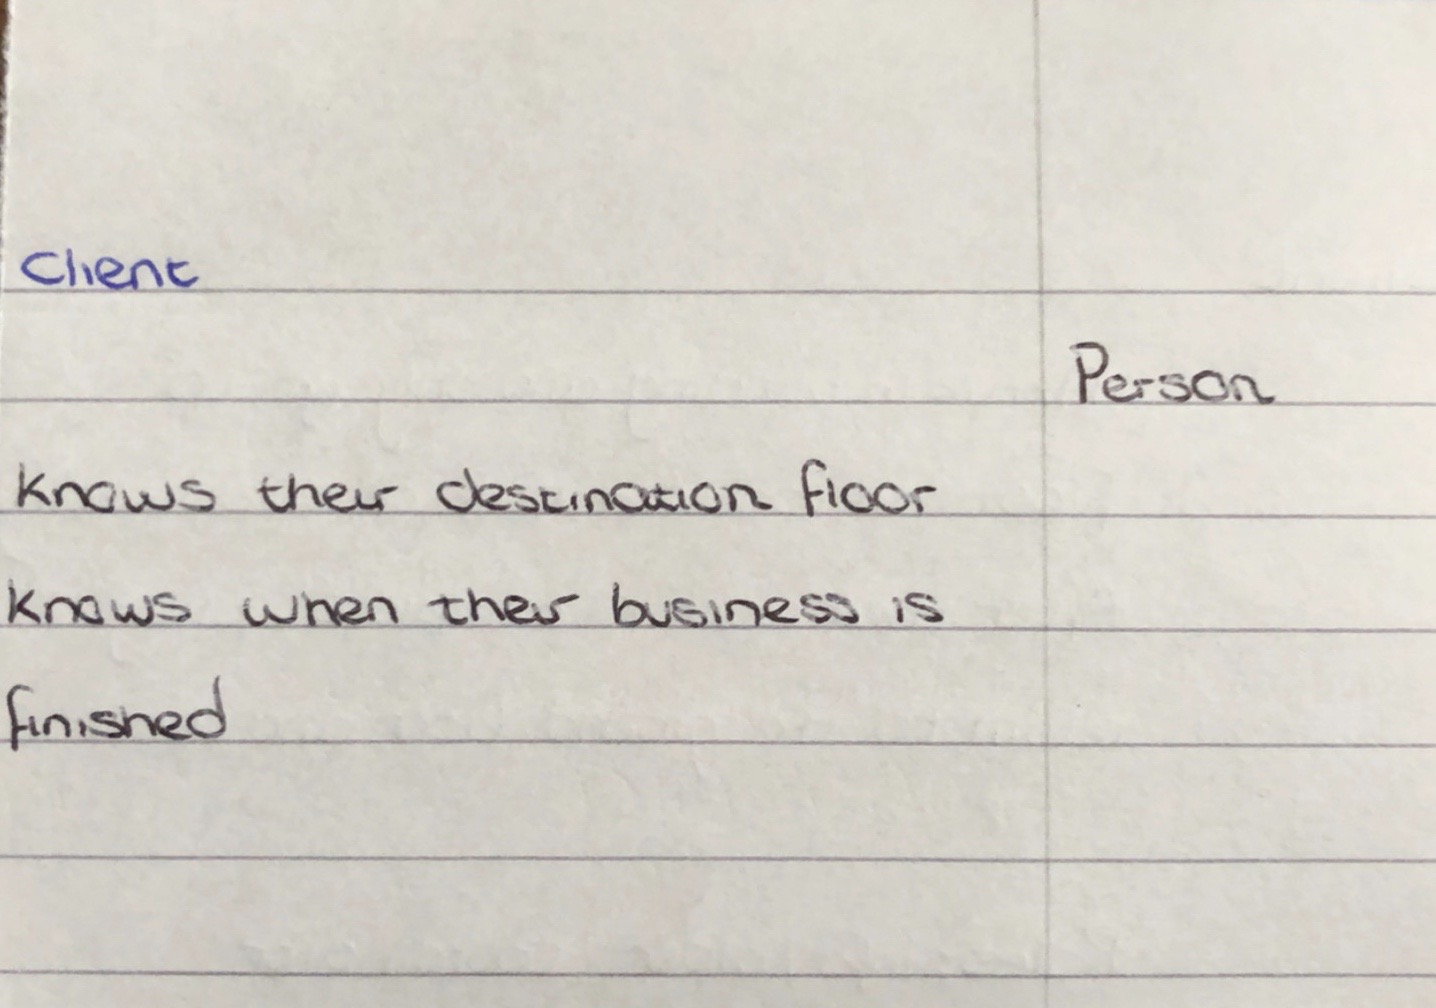 Client
Person
Knows their destination floor
Knows when their business is
finished